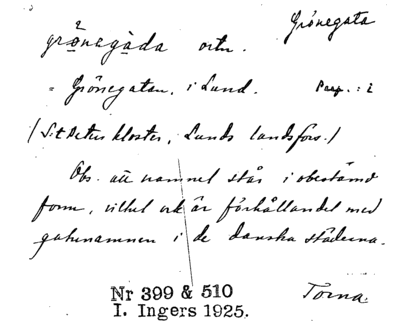 Grönegata
grönegàda ortn.
= Grönegatan, i Lund.
/S:t Peters kloster, Lunds landsförs./
Obs. att namnet står i obestämd
form, vilket ock är förhållandet med
gatunamnen i de danska städerna.
Torna.
Nr 399 & 510
I. Ingers 1925.